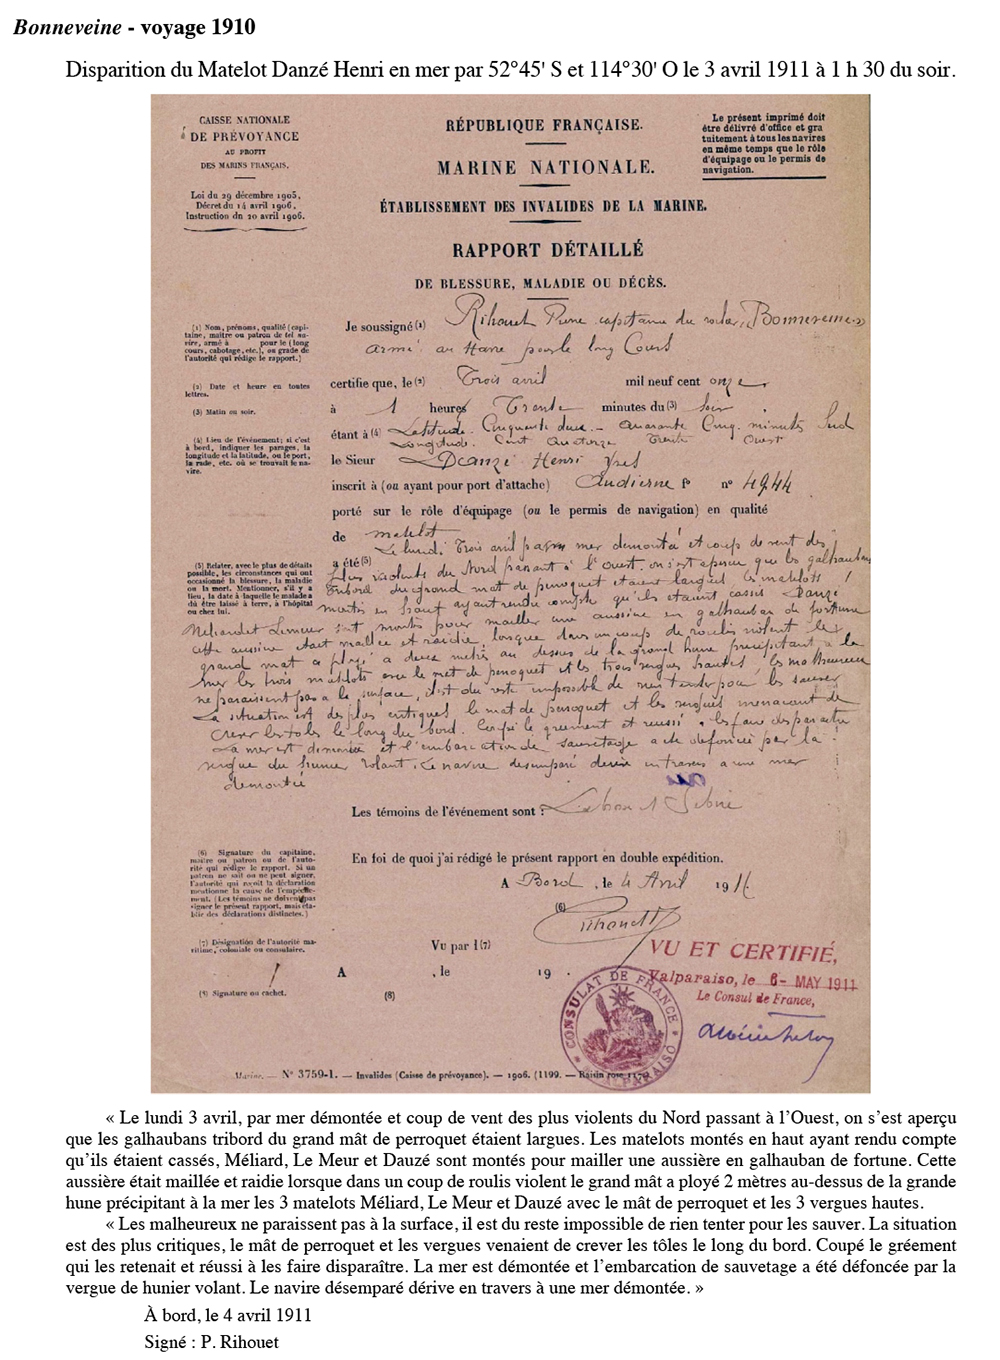 Bonneveine - voyage 1910
Disparition du Matelot Danzé Henri en mer par 52°45' S et 114°30' O le 3 avril 1911 à 1 h 30 du soir.
CAISSE NATIONALE
DE PRÉVOYANCE
AU PROFIT
DES MARINS FRANÇAIS.
Loi du 29 décembre 1905,
Décret du 14 avril 1906,
Instruction dn 20 avril 1906.
RÉPUBLIQUE FRANÇAISE.
MARINE NATIONALE.
ÉTABLISSEMENT DES INVALIDES DE LA MARINE.
RAPPORT DÉTAILLÉ
DE BLESSURE, MALADIE OU DÉCÈS.
Le présent imprimé doit
être délivré d'office et gra
tuitement à tous les navires
en même temps que le rôle
d'équipage ou le permis de
navigation.
(1) Nom, prénoms, qualité (capi-
taine, maître ou patron de tel na-
vire, armé à pour le (long
cours, cabotage, etc.), ou grade de
l'autorité qui rédige le rapport.)
Je soussigné (1) Rihouet capitaine du Bonneveine
armé au Havre pour le long Cours
(2) Date et heure en toutes
lettres.
certifie que, le (2) Trois avril mil neuf cent onze
(3) Matin ou soir.
à 1 heures Trente minutes du (3) Soir
(4) Lieu de l'événement; si c'est
à bord, indiquer les parages, la
longitude et la latitude, ou le port,
la rade, etc. où se trouvait le na-
vire.
étant à (4) Latitude. Cinquante deux - Quarante Cinq minutes Sud
Longitude. Cent Quatorze Trente Ouest
le Sieur Danzé Henri Yves
inscrit à (ou ayant pour port d'attache) Audierne f° n° 4944
porté sur le rôle d'équipage (ou le permis de navigation) en qualité
de matelot
a été (5)
(5) Relater, avec le plus de détails
possible, les circonstances qui ont
occasionné la blessure, la maladie
ou la mort. Mentionner, s'il y a
lieu, la date à laquelle le malade a
dû être laissé à terre, à l'hôpital
ou chez lui.
Le lundi Trois avril par mer démontée et coup de vent des
plus violents du Nord passant à l'Ouest, on s'est aperçu que les galhaubans
tribord du grand mat de perroquet etaient largues les matelots
montés en haut ayant rendu compte qu'ils etaient cassés Danzé
Lemeur sont montés pour mailler une aussière en galhauban de fortune
cette aussière etait maillée et raidie, lorsque dans un coup de roulis violent le
grand mat a ployé a deux mètres au dessus de la grande hune précipitant a la
mer les trois matelots avec le mat de perroquet et les trois vergues hautes, les malheureux
ne paraissent pas a la surface, il est du reste impossible de rien tenter pour les sauver
La situation est des plus critiques le mat de perroquet et les vergues venaient de
crever les toles le long du bord. Coupé le greement et reussi a les faire disparaitre
La mer est demontée et l'embarcation de sauvetage a été defoncée par la
vergue du hunier volant. Le navire desemparé derive en travers a une mer
demontée
Les témoins de l'événement sont :
(6) Signature du capitaine,
maître ou patron ou de l'auto-
rité qui rédige le rapport. Si un
patron ne sait ou ne peut signer,
l'autorité qui reçoit la déclaration
mentionne la cause de l'empêche-
ment. (Les témoins ne doivent pas
signer le présent rapport, mais éta-
blir des déclarations distinctes.)
En foi de quoi j'ai rédigé le présent rapport en double expédition.
A Bord, le 4 Avril 1911
(6)
Rihouet
(7) Désignation de l'autorité ma-
ritime, coloniale ou consulaire.
Vu par l (7)
A , le 19 .
(8) Signature ou cachet.
(8)
VU ET CERTIFIÉ,
Valparaiso, le 6- MAY 1911
Le Consul de France,
CONSULAT DE FRANCE
VALPARAISO
Marine. — N° 3759-1. — Invalides (Caisse de prévoyance). — 1906. (1199. — Raisin rose
« Le lundi 3 avril, par mer démontée et coup de vent des plus violents du Nord passant à l’Ouest, on s’est aperçu
que les galhaubans tribord du grand mât de perroquet étaient largues. Les matelots montés en haut ayant rendu compte
qu’ils étaient cassés, Méliard, Le Meur et Dauzé sont montés pour mailler une aussière en galhauban de fortune. Cette
aussière était maillée et raidie lorsque dans un coup de roulis violent le grand mât a ployé 2 mètres au-dessus de la grande
hune précipitant à la mer les 3 matelots Méliard, Le Meur et Dauzé avec le mât de perroquet et les 3 vergues hautes.
« Les malheureux ne paraissent pas à la surface, il est du reste impossible de rien tenter pour les sauver. La situation
est des plus critiques, le mât de perroquet et les vergues venaient de crever les tôles le long du bord. Coupé le gréement
qui les retenait et réussi à les faire disparaître. La mer est démontée et l’embarcation de sauvetage a été défoncée par la
vergue de hunier volant. Le navire désemparé dérive en travers à une mer démontée. »
À bord, le 4 avril 1911
Signé : P. Rihouet